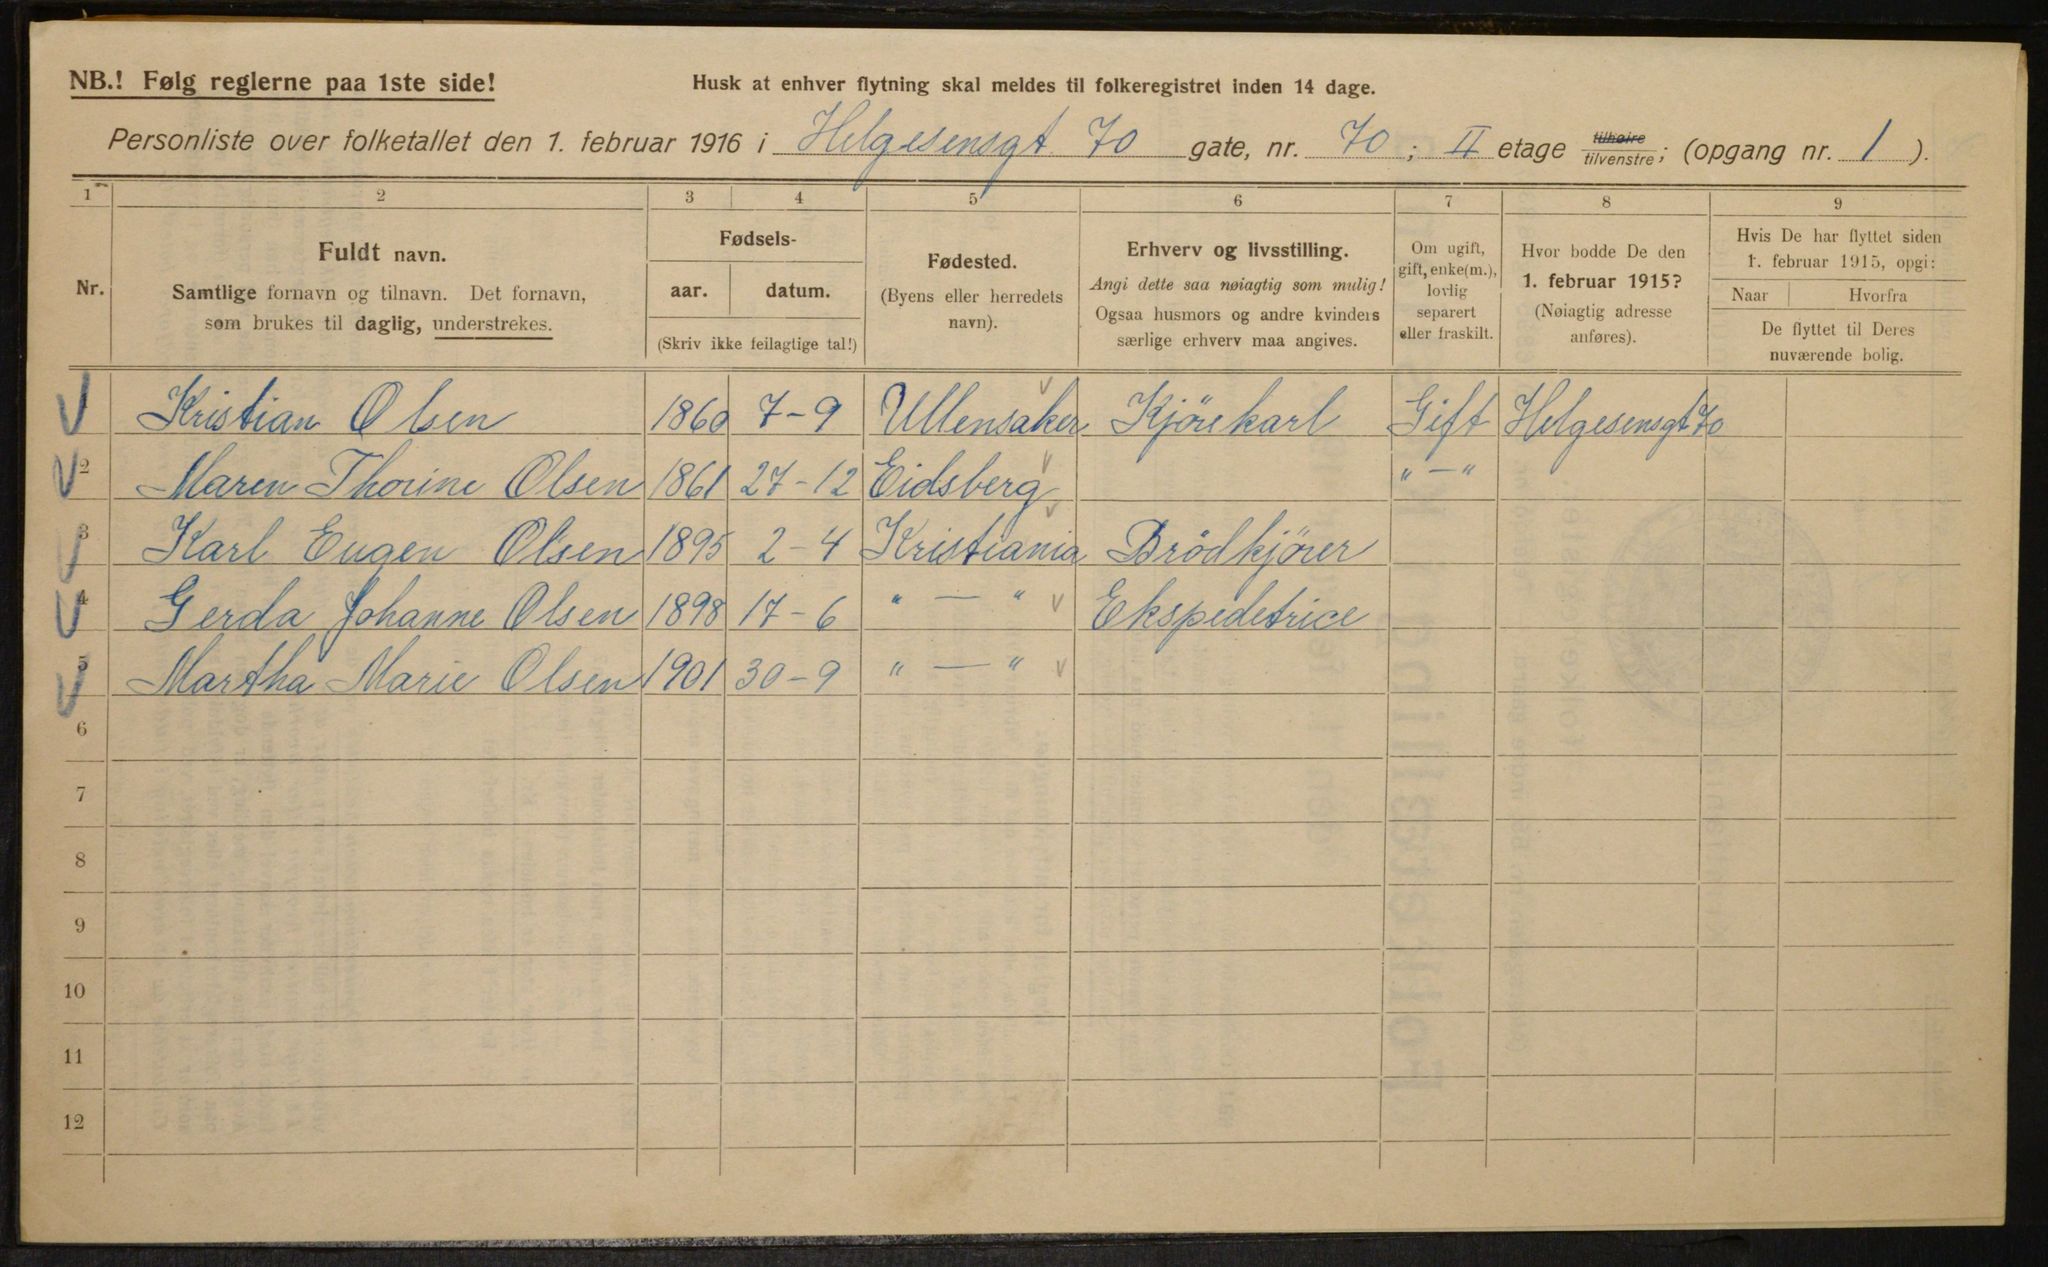 NB.! Følg reglerne paa 1ste side!
Husk at enhver flytning skal meldes til folkeregistret inden 14 dage.
Personliste over folketallet den 1. februar 1916 i Helgesensgt 70 gate, nr. 70; II etage tilhøire/tilvenstre; (opgang nr. 1).
1 2 3 4 5 6 7 8 9
Nr.
Fuldt navn.
Samtlige fornavn og tilnavn. Det fornavn,
som brukes til daglig, understrekes.
Fødsels-
aar. datum.
(Skriv ikke feilagtige tal!)
Fødested.
(Byens eller herredets
navn).
Erhverv og livsstilling.
Angi dette saa nøiagtig som mulig!
Ogsaa husmors og andre kvinders
særlige erhverv maa angives.
Om ugift,
gift, enke(m.),
lovlig
separert
eller fraskilt.
Hvor bodde De den
1. februar 1915?
(Nøiagtig adresse
anføres).
Hvis De har flyttet siden
1. februar 1915, opgi:
Naar Hvorfra
De flyttet til Deres
nuværende bolig.
Kristian Olsen 1860 7-9 Ullensaker Kjörekarl Gift Helgesensgt 70
2 Maren Thorine Olsen 1861 27-12 Eidsberg " — "
3 Karl Eugen Olsen 1895 2-4 Kristiania Brödkjörer
4 Gerda Johanne Olsen 1898 17-6 " — " Ekspedetrice
5 Martha Marie Olsen 1901 30-9 " — "
6
7
8
9
10
11
12